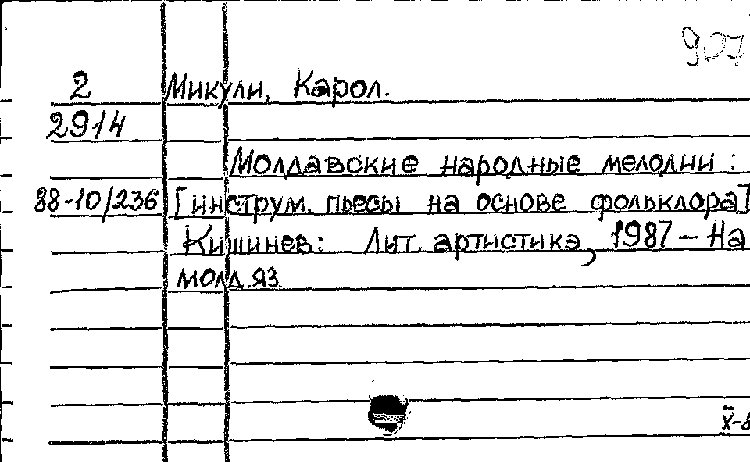 907
2 Микули, Карол.
2914
Молдавские народные мелодии :
88-10/236 [инструм. пьесы на основе фольклора]
Кишинев: Лит. артистикэ, 1987 – На
молд. яз